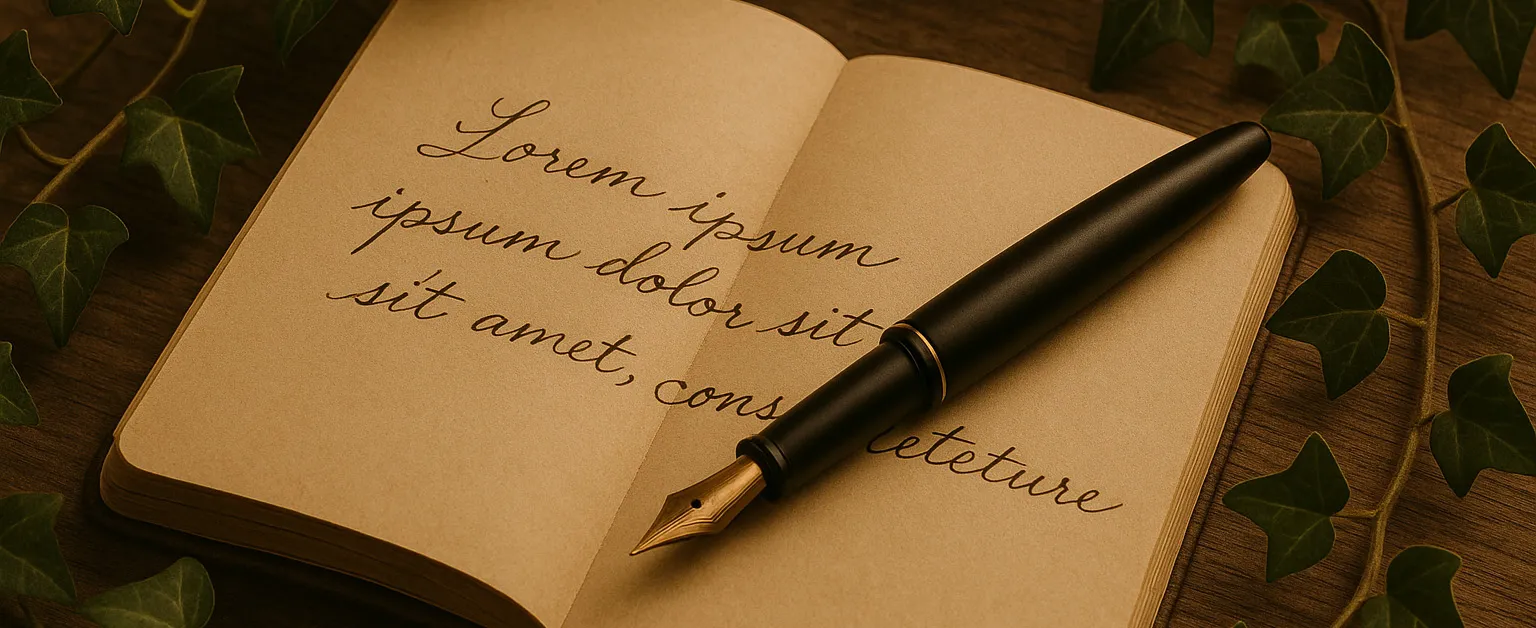 Lorem ipsum
ipsum dolor sit
sit amet, cons eteture